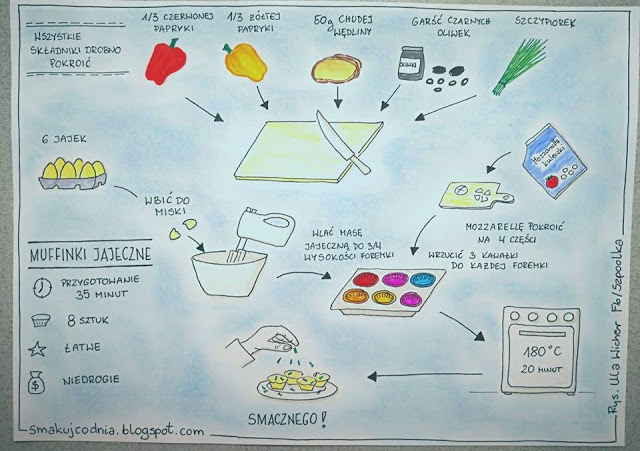 WSZYSTKIE
SKŁADNIKI DROBNO
POKROIĆ
1/3 CZERWONEJ
PAPRYKI
1/3 ŻÓŁTEJ
PAPRYKI
50g CHUDEJ
WĘDLINY
GARŚĆ CZARNYCH
OLIWEK
SZCZYPIOREK
OLIWKI
6 JAJEK
WBIĆ DO
MISKI
Mozzarella
kuleczki
MOZZARELLĘ POKROIĆ
NA 4 CZĘŚCI
WLAĆ MASĘ
JAJECZNĄ DO 3/4
WYSOKOŚCI FOREMKI
WRZUCIĆ 3 KAWAŁKI
DO KAŻDEJ FOREMKI
MUFFINKI JAJECZNE
PRZYGOTOWANIE
35 MINUT
8 SZTUK
ŁATWE
NIEDROGIE
180°C
20 MINUT
SMACZNEGO!
smakujcodnia.blogspot.com
Rys. Ula Wicher Fb/Szpoolka